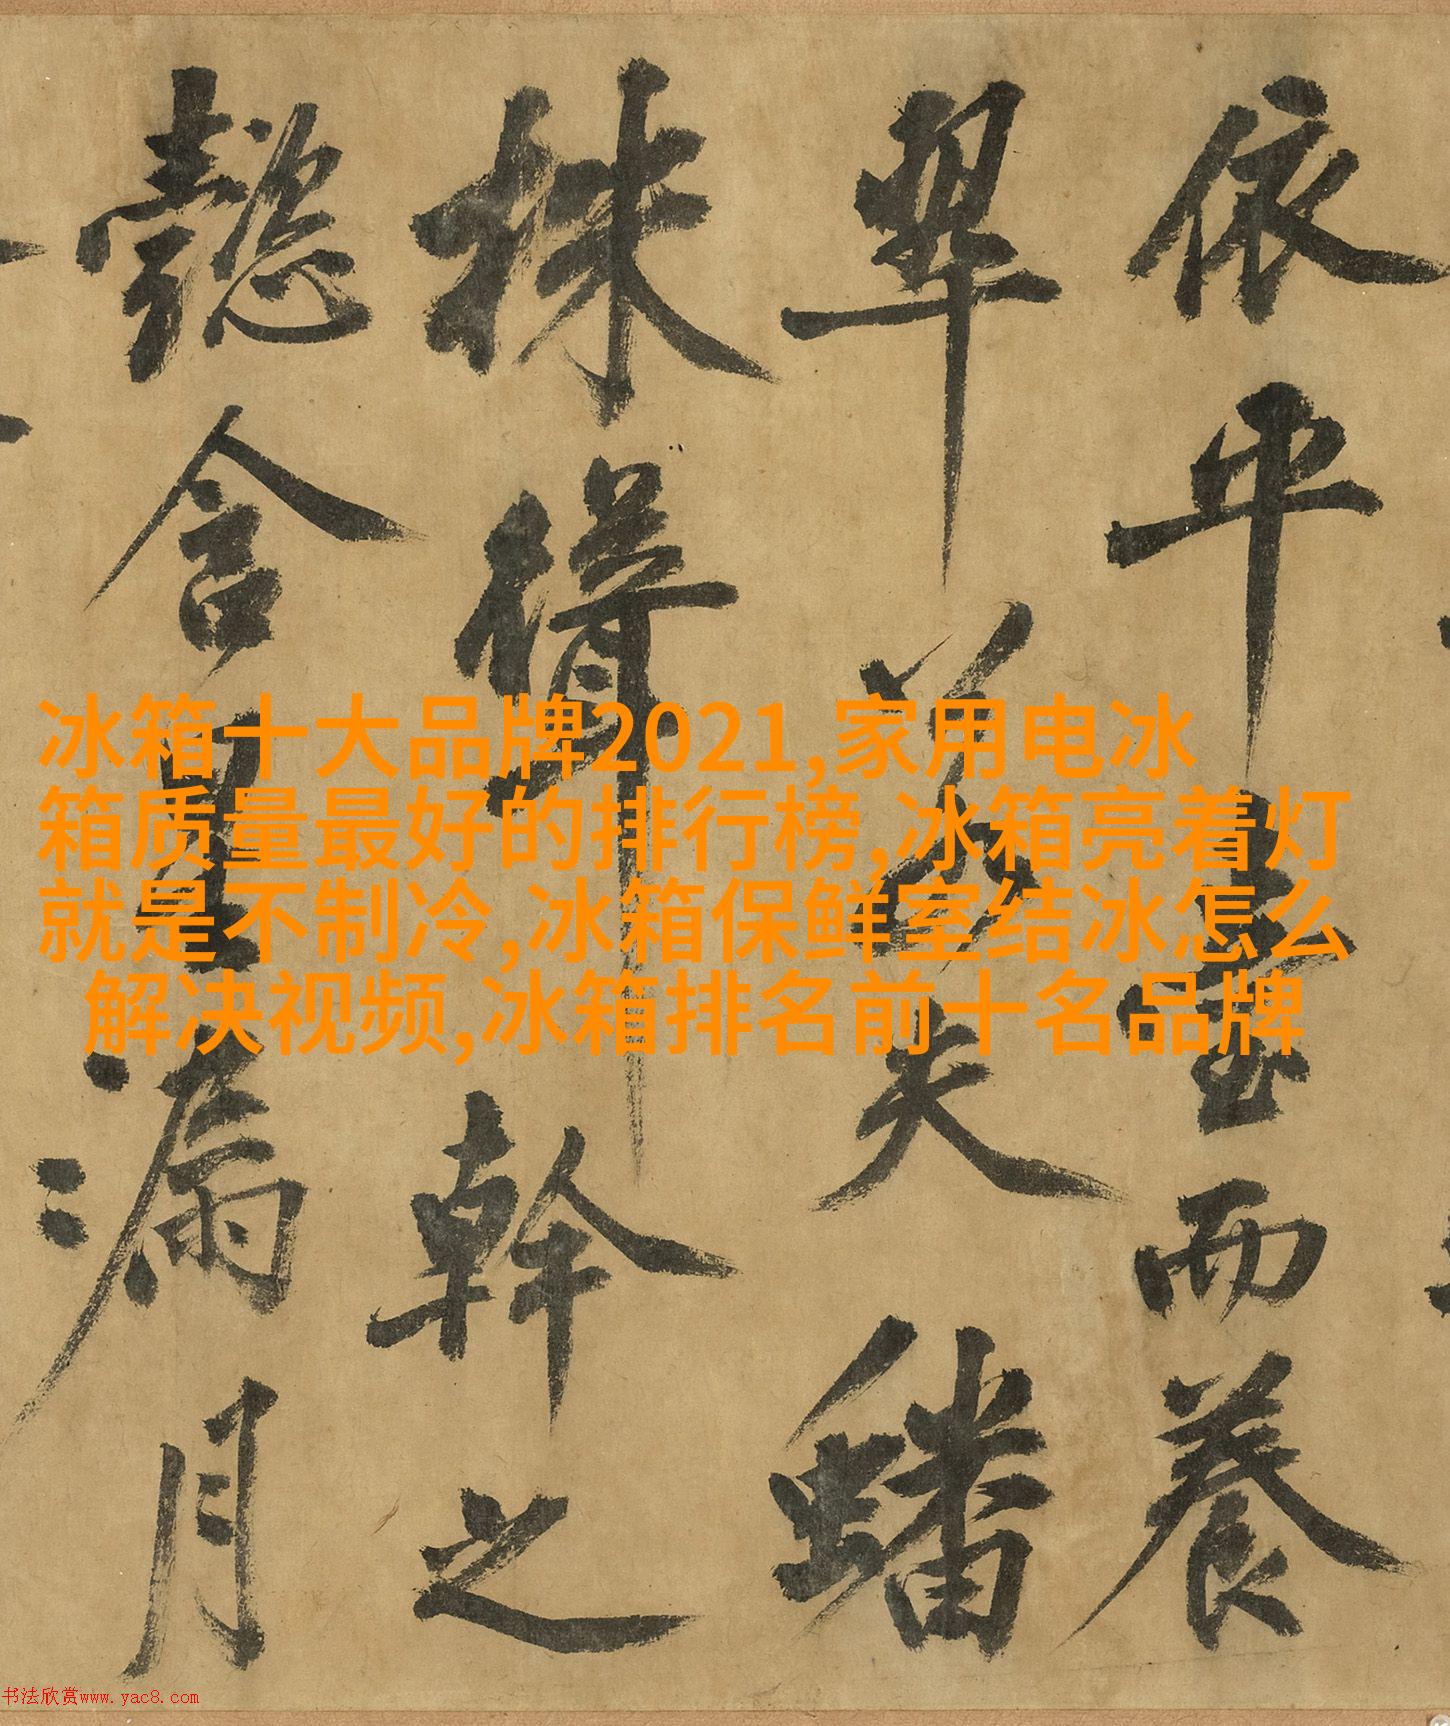 依平而養
翠若夫蟠
株幹之
懿含星漏月
冰箱十大品牌2021,家用电冰
箱质量最好的排行榜,冰箱亮着灯
就是不制冷,冰箱保鲜室结冰怎么
解决视频,冰箱排名前十名品牌
书法欣赏www.yac8.com